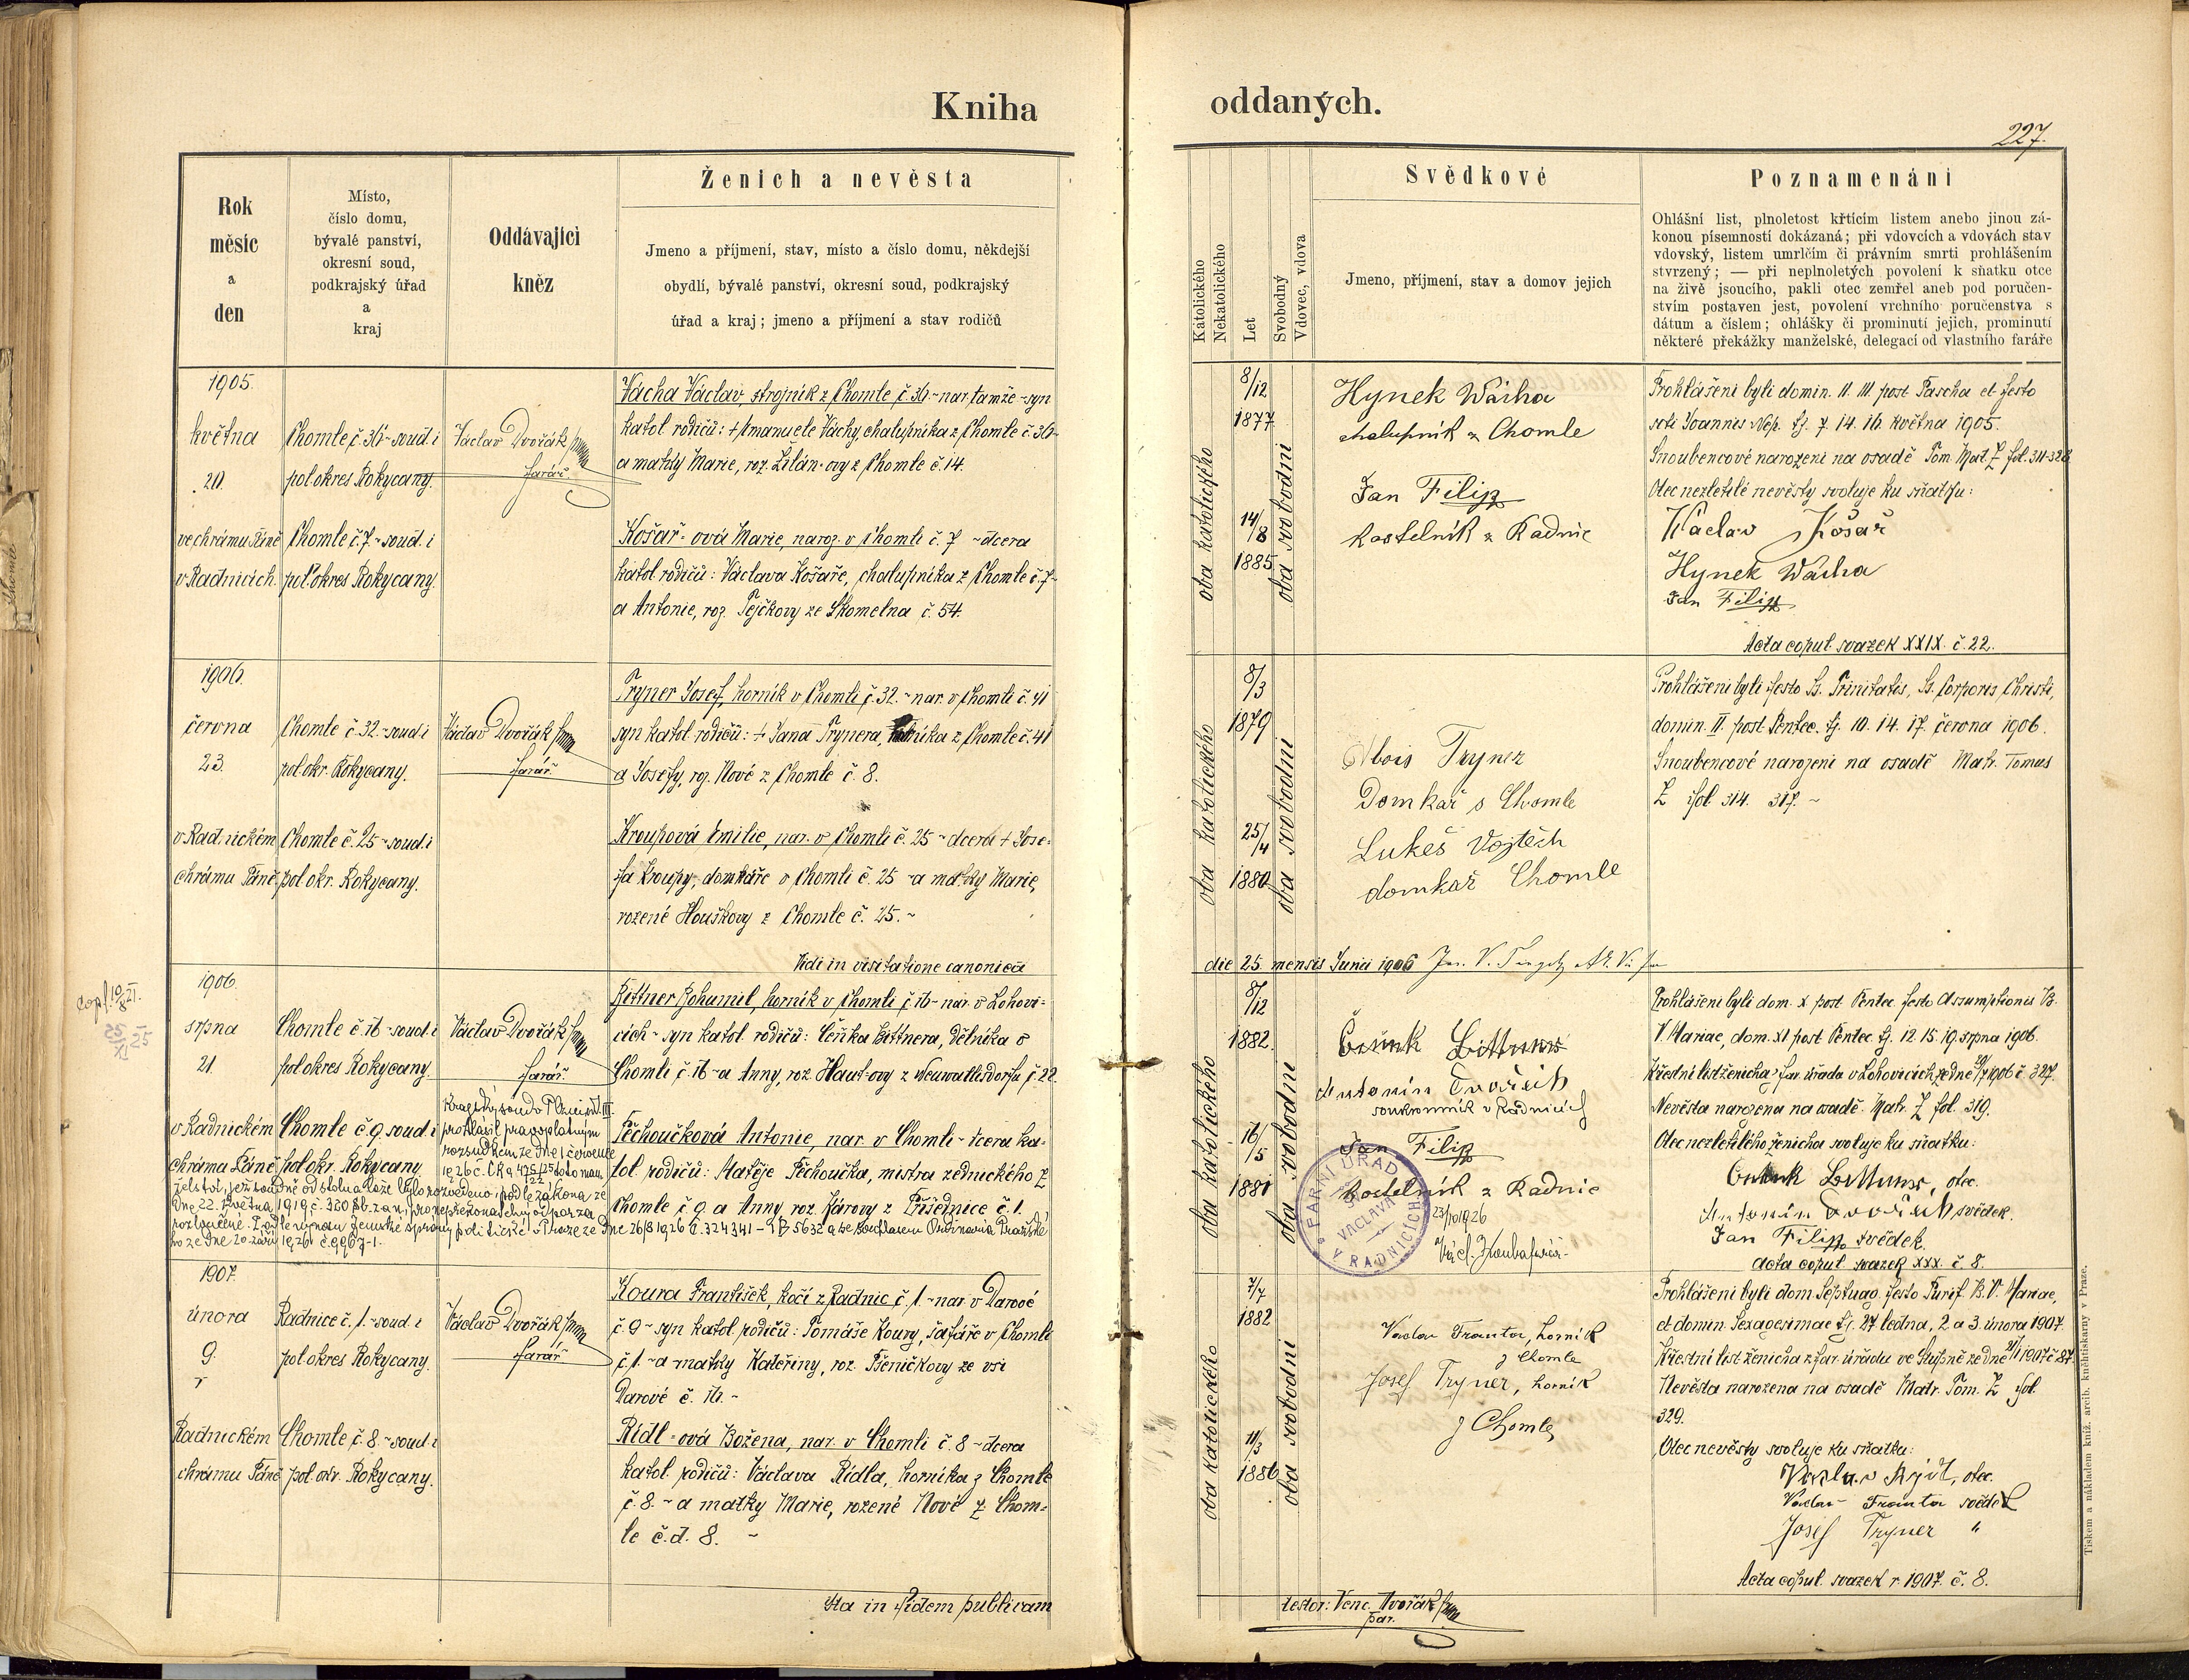 Kniha
oddaných.
227.
Rok
měsíc
a
den
Místo,
číslo domu,
bývalé panství,
okresní soud,
podkrajský úřad
a
kraj
Oddávající
kněz
Ženich a nevěsta
Jmeno a příjmení, stav, místo a číslo domu, někdejší
obydlí, bývalé panství, okresní soud, podkrajský
úřad a kraj; jmeno a příjmení a stav rodičů
Katolického
Nekatolického
Let
Svobodný
Vdovec, vdova
Svědkové
Jmeno, příjmení, stav a domov jejich
Poznamenání
Ohlášní list, plnoletost křtícím listem anebo jinou zá-
konou písemností dokázaná; při vdovcích a vdovách stav
vdovský, listem umrlčím či právním smrti prohlášením
stvrzený; — při neplnoletých povolení k sňatku otce
na živě jsoucího, pakli otec zemřel aneb pod poručen-
stvím postaven jest, povolení vrchního poručenstva s
dátum a číslem; ohlášky či prominutí jejich, prominutí
některé překážky manželské, delegací od vlastního faráře
1905.
května
20.
ve chrámu Páně
v Radnicích
Chomle č. 36 - soud. i
pol. okres Rokycany.
Chomle č. 7 - soud. i
pol. okres Rokycany.
Václav Dvořák
farář.
Vácha Václav, strojník z Chomle č. 36 - nar. tamže - syn
katol. rodičů: + Emanuele Váchy, chalupníka z Chomle č. 36 -
a matky Marie, roz. Žilán-ovy z Chomle č. 14.
Košař-ová Marie, naroz. v Chomli č. 7 - dcera
katol. rodičů: Václava Košaře, chalupníka z Chomle č. 7 -
a Antonie, roz. Pejčkovy ze Skomelna č. 54.
oba katolického
8/12
1877
14/8
1885
oba svobodni
Hynek Wácha
chalupník z Chomle
Jan Filip
kostelník z Radnic
Prohlášeni byli domin. II. III. post Pascha et festo
scti Joannis Nep. tj. 7. 14. 16. května 1905.
Snoubencové narozeni na osadě Tom. Mat. Z fol. 311-328
Otec nezletilé nevěsty svoluje ku sňatku:
Václav Košař
Hynek Wácha
Jan Filip
Acta copul. svazek XXIX. č. 22.
1906.
června
23.
v Radnickém
chrámu Páně
Chomle č. 32 - soud. i
pol. okr. Rokycany.
Chomle č. 25 - soud. i
pol. okr. Rokycany.
Václav Dvořák
farář
Tryner Josef, horník v Chomli č. 32. - nar. v Chomli č. 41
syn katol. rodičů: + Jana Trynera, z Chomle č. 41
a Josefy, roz. Nové z Chomle č. 8.
Kroupová Emilie, nar. v Chomli č. 25 - dcera + Jose-
fa Kroupy, domkáře v Chomli č. 25 - a matky Marie,
rozené Houškovy z Chomle č. 25. -
Vidi in visitatione canonica
oba katolického
8/3
1879
25/4
1880
oba svobodni
Alois Tryner
Domkař s Chomle
Lukeš Vojtěch
domkař Chomle
Prohlášeni byli festo Ss. Trinitatis, Ss. Corporis Christi,
domin. II. post Pentec. tj. 10. 14. 17. června 1906.
Snoubencové narozeni na osadě Matr. Tomus
Z fol. 314. 317. -
die 25 mensis Junii 1906
copl. 10/8 21.
25/XI 25
1906.
srpna
21.
v Radnickém
chrámu Páně
Chomle č. 16 - soud. i
pol. okres Rokycany.
Chomle č. 9. soud. i
pol. okr. Rokycany
Václav Dvořák
farář.
Bittner Bohumil, horník v Chomli č. 16 - nar. v Lohovi-
cích - syn katol. rodičů: Čeňka Bittnera, dělníka v
Chomli č. 16 - a Anny, roz. Haut-ovy z Neuwaltersdorfu č. 22.
Krajský soud v Plzni odd. III.
prohlásil pravoplatným
rozsudkem ze dne 1. července
1926 č. Ck 9 475/25/22 toto man-
želství, jež soudně od stolu a lože bylo rozvedeno, podle zákona ze
dne 22. května 1919 č. 320 Sb. z. a n. pro nepřekonatelný odpor za
rozloučené. Podle výnosu zemské správy politické v Praze ze dne 26/8 1926 č. 324341 - 1 B 5632 a se souhlasem Ordinariátu Pražské-
ho ze dne 20. září 1926 č. 9967-1.
Pěchoučková Antonie, nar. v Chomli - dcera ka-
tol. rodičů: Matěje Pěchoučka, mistra zednického z
Chomle č. 9. a Anny, roz. Károvy z Příšednice č. 1.
oba katolického
8/12
1882.
16/5
1881
oba svobodni
Čeněk Bittner
Antonín Dvořák
soukromník v Radnicích
Jan Filip
kostelník z Radnic
FARNÍ ÚŘAD SV. VÁCLAVA V RADNICÍCH
23/10 1926
Prohlášeni byli dom. X post Pentec. festo Assumptionis B.
V. Mariae, dom. XI post Pentec. tj. 12. 15. 19. srpna 1906.
Křestní list ženicha z far. úřadu v Lohovicích ze dne 29/7 1906 č. 327.
Nevěsta narozena na osadě. Matr. Z fol. 319.
Otec nezletilého ženicha svoluje ku sňatku:
Čeněk Bittner, otec.
Antonín Dvořák svědek.
Jan Filip svědek.
Acta copul. svazek XXX. č. 8.
1907.
února
9.
v
Radnickém
chrámu Páně
Radnice č. 1. - soud. i
pol. okres Rokycany.
Chomle č. 8. - soud. i
pol. okr. Rokycany.
Václav Dvořák
farář
Koura František, kočí z Radnic č. 1. - nar. v Darové
č. 9 - syn katol. rodičů: Tomáše Koury, šafáře v Chomli
č. 1. - a matky Kateřiny, roz. Pšeničkovy ze vsi
Darové č. 16. -
Rídl-ová Božena, nar. v Chomli č. 8 - dcera
katol. rodičů: Václava Rídla, horníka z Chomle
č. 8. - a matky Marie, rozené Nové z Chom-
le č. d. 8. -
oba katolického
7/7
1882
11/3
1886
oba svobodni
Václav Tranta, horník
z Chomle
Josef Tryner, horník
z Chomle
Prohlášeni byli dom. Septuag. festo Purif. B. V. Mariae,
et domin. Sexagesimae tj. 27. ledna, 2. a 3. února 1907.
Křestní list ženicha z far. úřadu ve Stupně ze dne 21/1 1907 č. 87.
Nevěsta narozena na osadě Matr. Tom. Z fol.
329.
Otec nevěsty svoluje ku sňatku:
Václav Rýdl, otec.
Václav Tranta svědek
Josef Tryner "
Acta copul. svazek r. 1907. č. 8.
Ita in fidem publicam
testor: Venc. Dvořák
par.
Tiskem a nákladem kníž. arcib. knihtiskárny v Praze.